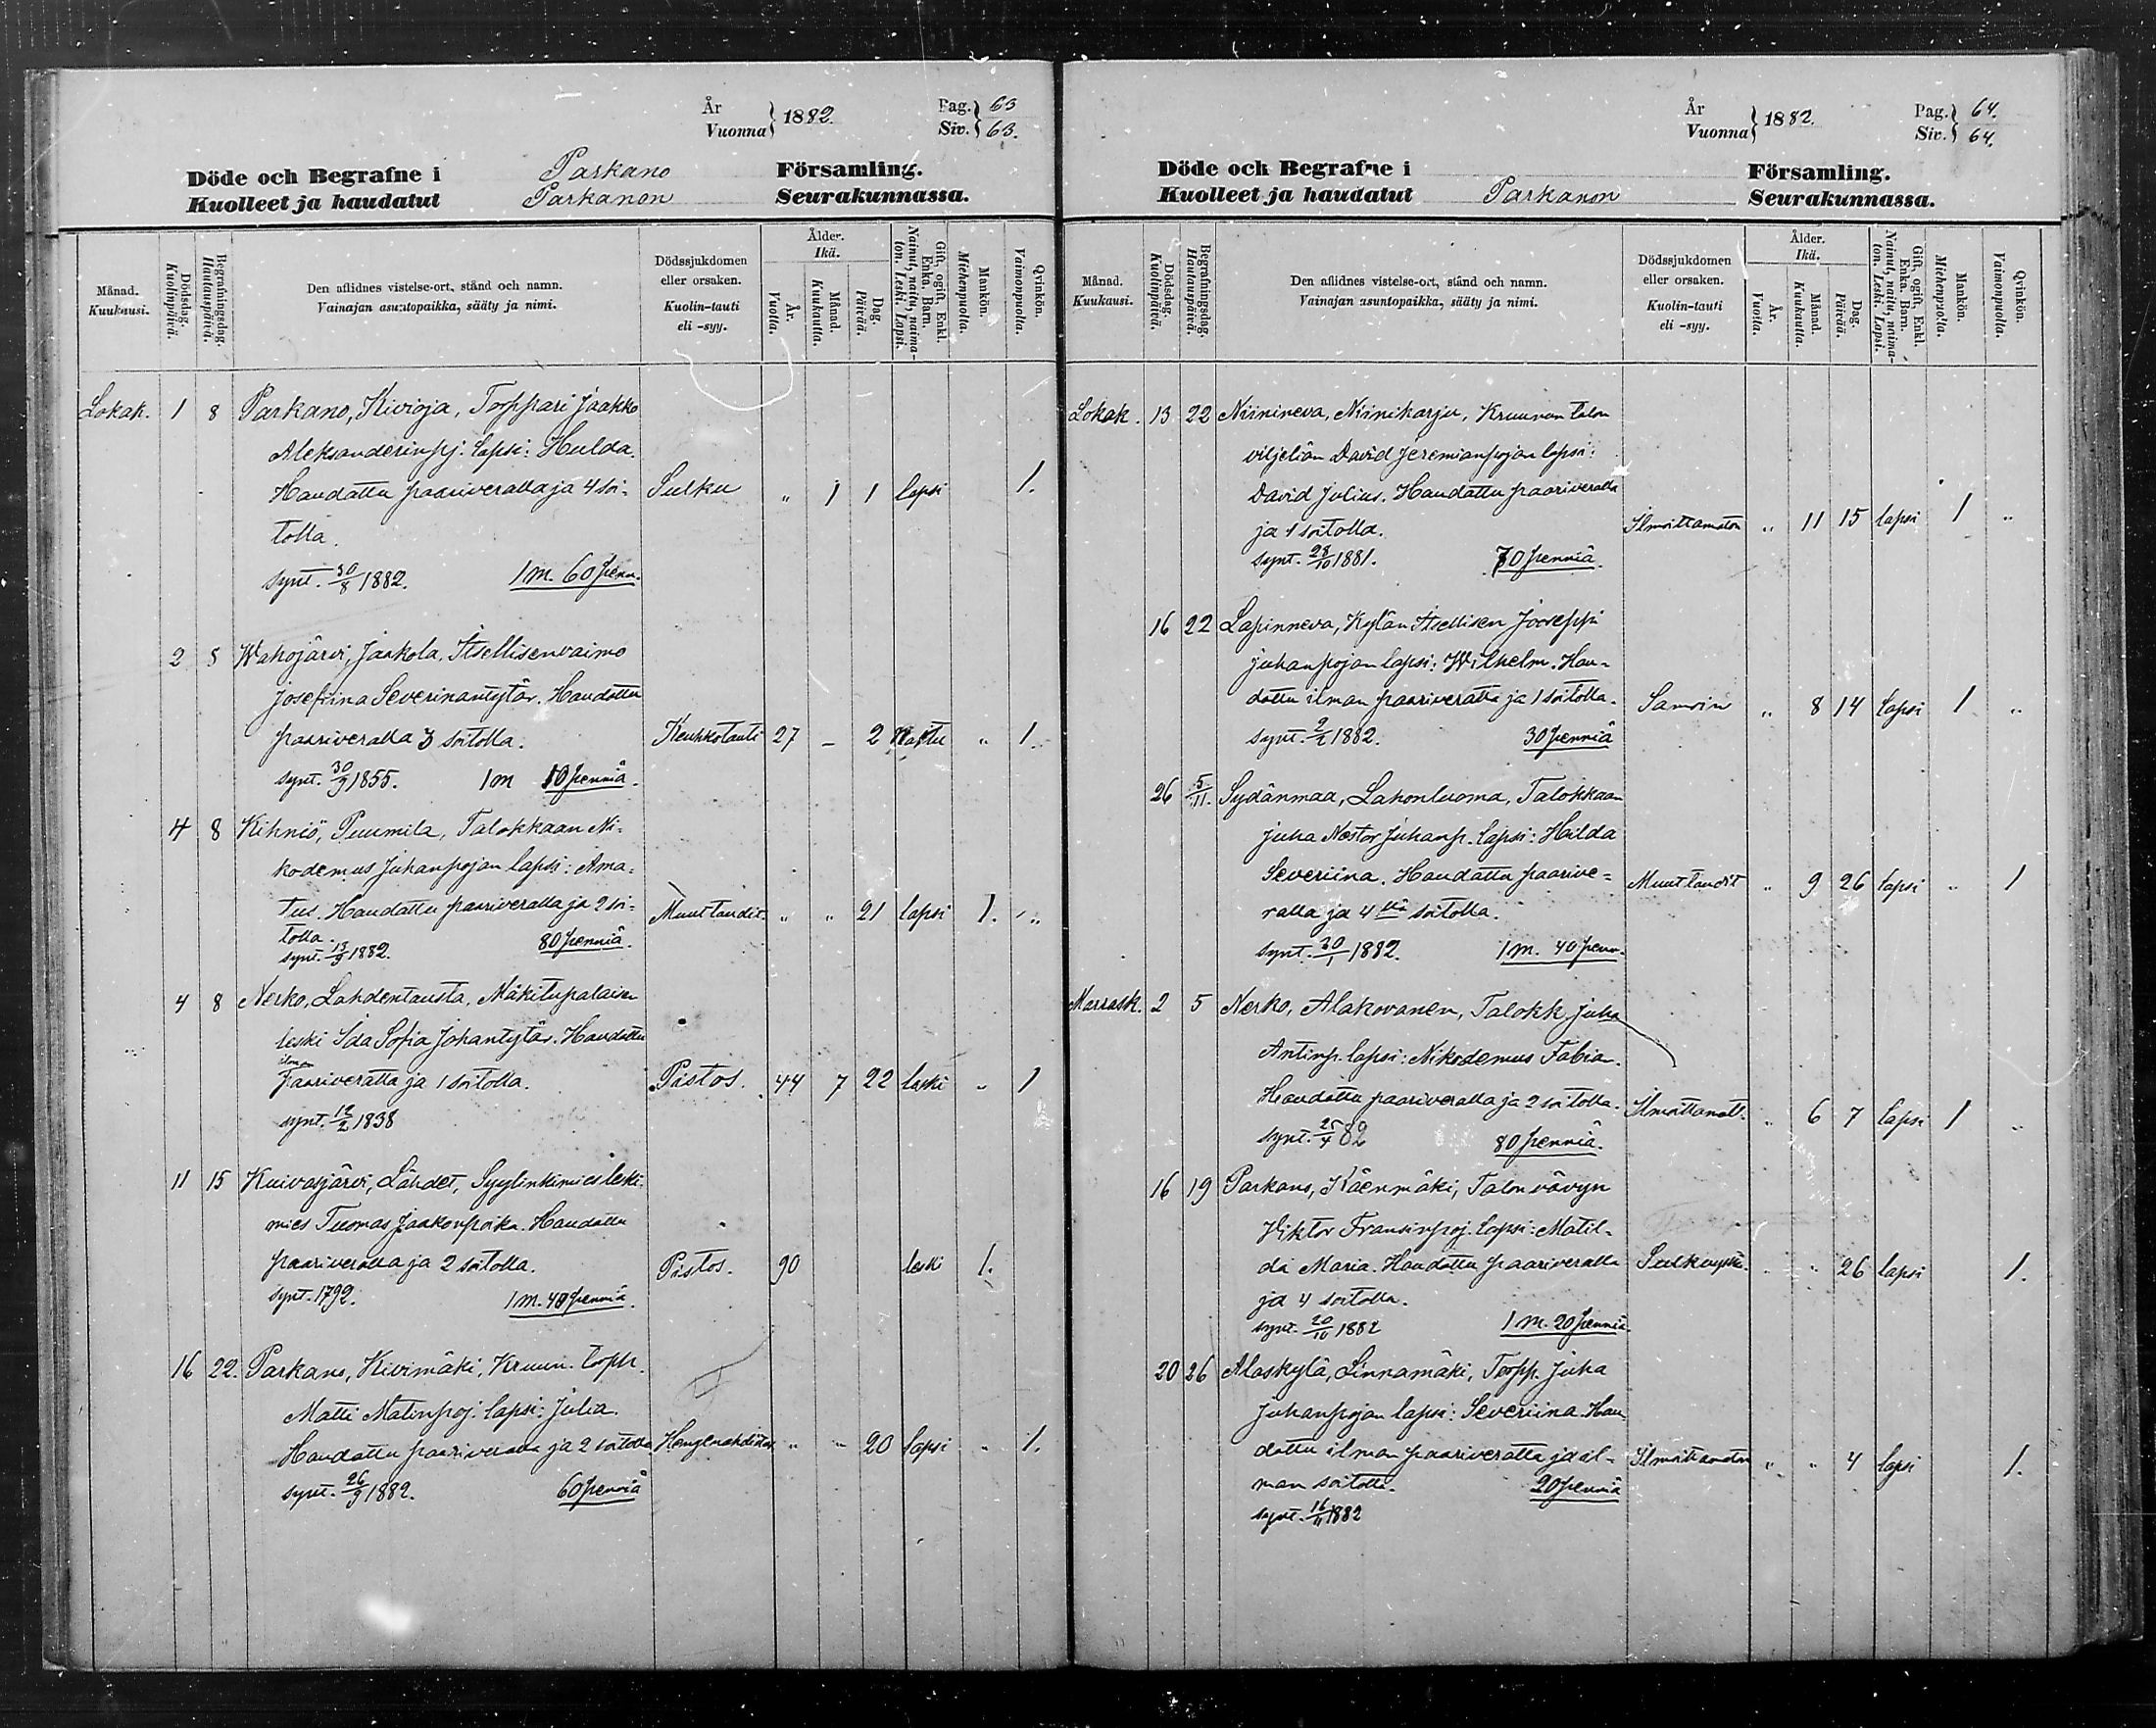 År
Vuonna } 1882.
Pag. } 63
Siv. } 63.
Döde och Begrafne i Parkano Församling.
Kuolleet ja haudatut Parkanon Seurakunnassa.
Månad.
Kuukausi.
Dödsdag.
Kuolinpäivä.
Begrafningsdag.
Hautauspäivä.
Den aflidnes vistelse-ort, stånd och namn.
Vainajan asuntopaikka, sääty ja nimi.
Dödssjukdomen
eller orsaken.
Kuolin-tauti
eli -syy.
Ålder.
Ikä.
År.
Vuotta.
Månad.
Kuukautta.
Dag.
Päivää.
Gift, ogift, Enkl.
Enka. Barn.
Nainut, naitu, naima-
ton. Leski. Lapsi.
Mankön.
Miehenpuolta.
Qvinkön.
Vaimonpuolta.
Lokak. 1 8 Parkano, Kivioja, Torppari Jaakko
Aleksanderinpj. lapsi: Hulda.
Haudattu paariveralla ja 4 soi- Sulku „ 1 1 lapsi 1.
tolla.
synt. 30/8 1882. 1 m. 60 penn.
2 8 Wahojärvi, Jaakola, Itsellisenvaimo
Josefiina Severinantytär. Haudattu
paariveralla 3 soitolla. Keuhkotauti 27 – 2 Naitu „ 1.
synt. 30/9 1855. 1 m 10 penniä.
4 8 Kihniö, Puumila, Talokkaan Ni-
kodemus Juhanpojan lapsi: Ama-
tus. Haudattu paariveralla ja 2 soi- Muut taudit „ „ 21 lapsi 1. „
tolla. 80 penniä.
synt. 13/9 1882.
4 8 Nerko, Lahdentausta, Mäkitupalaisen
leski Ida Sofia Johantytär. Haudattu
ilman
paariveratta ja 1 soitolla. Pistos. 44 7 22 leski „ 1
synt. 12/2 1838
11 15 Kuivasjärvi, Lähdet, Syytinkimies leski-
mies Tuomas Jaakonpoika. Haudattu
paariveralla ja 2 soitolla. Pistos. 90 leski 1.
synt. 1792. 1 m. 40 penniä.
16 22. Parkano, Kivimäki, Kruun. torpp.
Matti Matinpoj. lapsi: Julia.
Haudattu paariveralla ja 2 soitolla Hengenahdistus „ „ 20 lapsi „ 1.
synt. 26/9 1882. 60 penniä
År
Vuonna } 1882.
Pag. } 64.
Siv. } 64.
Döde och Begrafne i Församling.
Kuolleet ja haudatut Parkanon Seurakunnassa.
Månad.
Kuukausi.
Dödsdag.
Kuolinpäivä.
Begrafningsdag.
Hautauspäivä.
Den aflidnes vistelse-ort, stånd och namn.
Vainajan asuntopaikka, sääty ja nimi.
Dödssjukdomen
eller orsaken.
Kuolin-tauti
eli -syy.
Ålder.
Ikä.
År.
Vuotta.
Månad.
Kuukautta.
Dag.
Päivää.
Gift, ogift, Enkl.
Enka. Barn.
Nainut, naitu, naima-
ton. Leski. Lapsi.
Mankön.
Miehenpuolta.
Qvinkön.
Vaimonpuolta.
Lokak. 13 22 Niinineva, Niinikarju, Kruunun talon
viljeliän David Jeremianpojan lapsi:
David Julius. Haudattu paariveralla
ja 1 soitolla. Ilmoittamaton „ 11 15 lapsi 1 „
synt. 28/10 1881. 70 penniä.
16 22 Lapinneva, Kylän Itsellisen Jooseppi
Juhanpojan lapsi: Wilhelm. Hau-
dattu ilman paariveratta ja 1 soitolla. Samoin „ 8 14 lapsi 1 „
synt. 2/2 1882. 30 penniä
26 5/11. Sydänmaa, Lahonluoma, Talokkaan
Juha Nestor Juhanp. lapsi: Hilda
Severiina. Haudattu paarive- Muut taudit „ 9 26 lapsi „ 1
ralla ja 4 llä soitolla.
synt. 30/1 1882. 1 m. 40 penn.
Marrask. 2 5 Nerko, Alakovanen, Talokk. Juha
Antinp. lapsi: Nikodemus Fabian.
Haudattu paariveralla ja 2 soitolla. Ilmoittamatt. „ 6 7 lapsi 1 „
synt. 25/4 82 80 penniä.
16 19 Parkano, Käenmäki, Talon vävyn
Viktor Fransinpoj. lapsi: Matil-
da Maria. Haudattu paariveralla Sulkuyskä. „ „ 26 lapsi 1.
ja 4 soitolla.
synt. 20/10 1882 1 m. 20 penniä
20 26 Alaskylä, Linnamäki, Torpp. Juha
Juhanpojan lapsi: Severiina. Hau-
dattu ilman paariveratta ja il- Ilmoittamaton „ „ 4 lapsi 1.
man soitotta. 20 penniä
synt. 16/11 1882